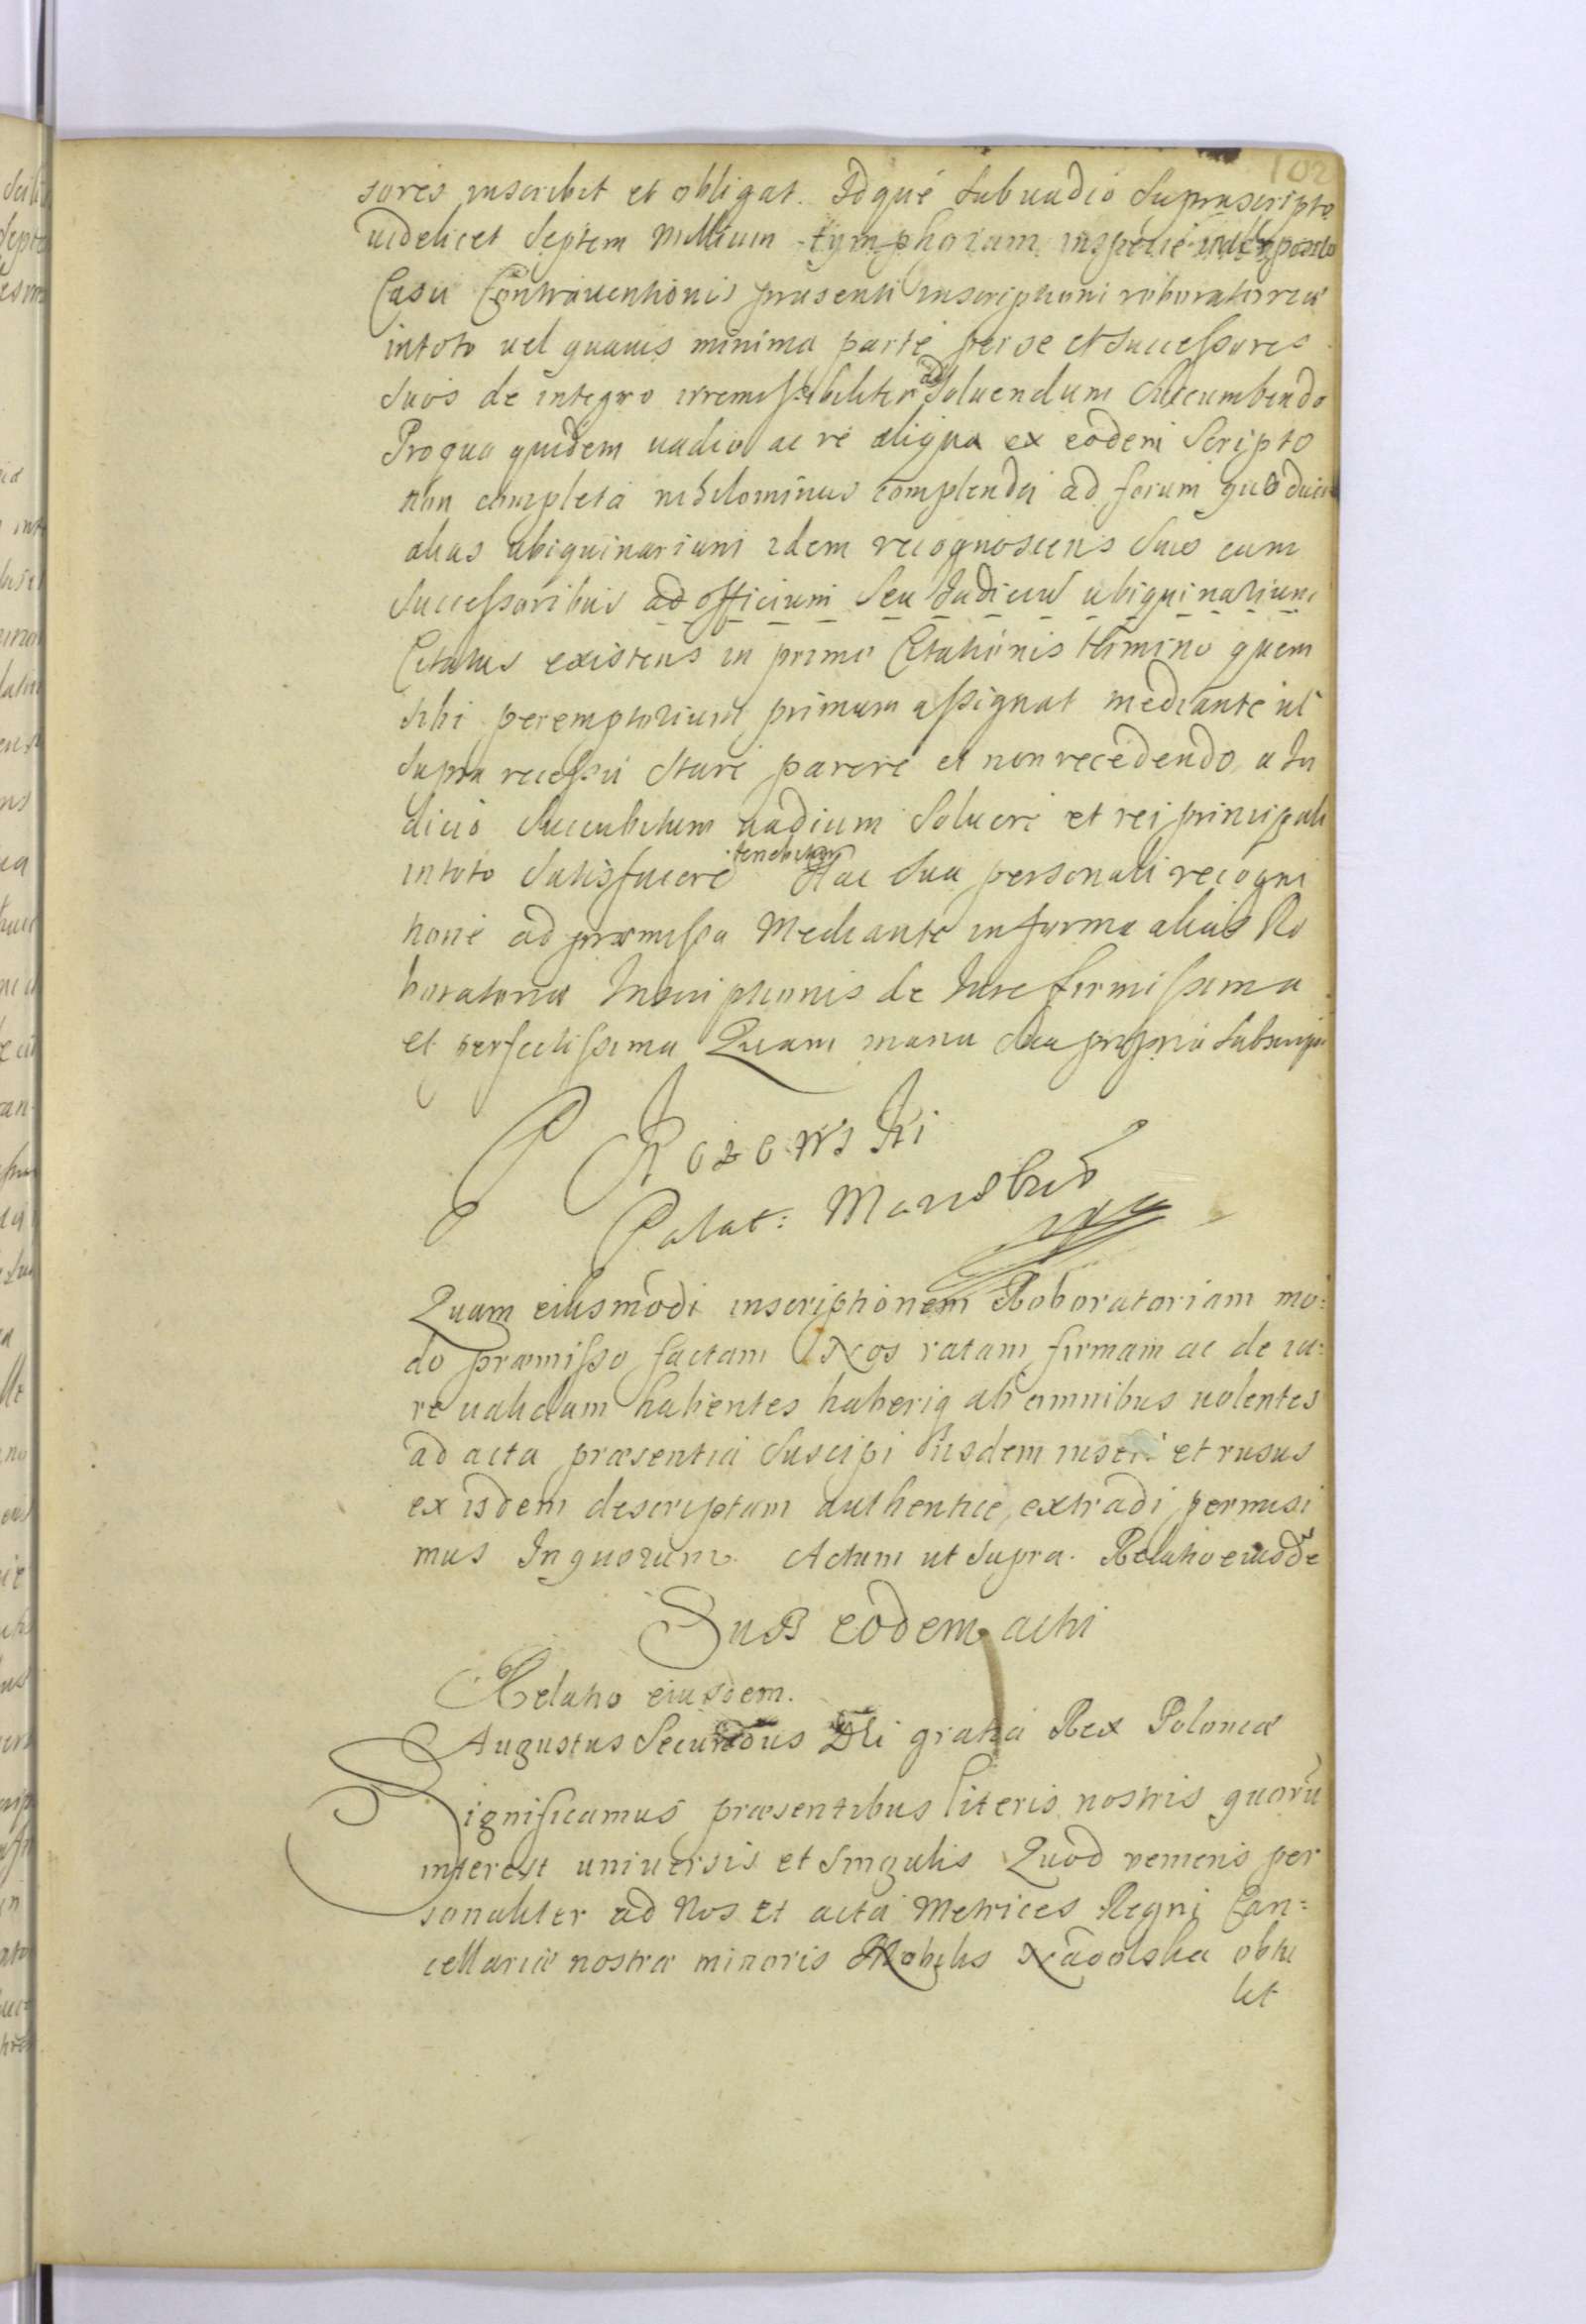 102
sores inscribit et obligat. Idque sub uadio suprascripto
uidelicet septem Millium tymphorum inspecie
Casu Contrauentionis præsenti inscriptioni roboratoriæ
intoto uel quauis minima parte per se et successores
suos de integro irremissibiliter ad soluendum succumbendo
Pro quo quidem uadio ac re aliqua ex eodem Scripto
non completa nihilominus complenda ad forum quoduis
alias ubiquinarium idem recognoscens suis cum
successoribus ad officium seu Judicium ubiquinarium
Citatus existens in primo Citationis termino quem
sibi peremptorium primum assignat mediante ut
supra recessu stare parere et non recedendo a Ju
dicio succubitum uadium soluere et rei principali
intoto satisfacere tenebitur Hac sua personali recogni
tione ad præmissa Mediante in forma alias Ro
boratoriæ Inscriptionis de Iure firmissima
et perfectissima Quam manu sua propria subscripsit
Rozewski
Palat: Marieb
Quam eiusmodi inscriptionem Roboratoriam mo:
do præmisso factam Nos ratam firmam ac de iu:
re ualidam habentes haberiq ab omnibus uolentes
ad acta præsentia suscipi iisdem inseri et rusus
ex isdem descriptam authentice extradi permisi
mus In quorum. Actum ut supra. Relatio eiusde
Sub eodem actu
Relatio eiusdem.
Augustus Secundus Dei gratia Rex Poloniæ
Significamus præsentibus literis nostris quorū
interest uniuersis et singulis Quod veniens per
sonaliter ad Nos et acta Metrices Regni Can=
cellariæ nostræ minoris Nobilis obtu
lit